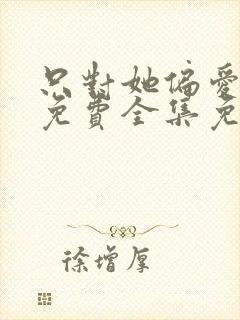 只對她偏愛
免費全集免
徐增厚